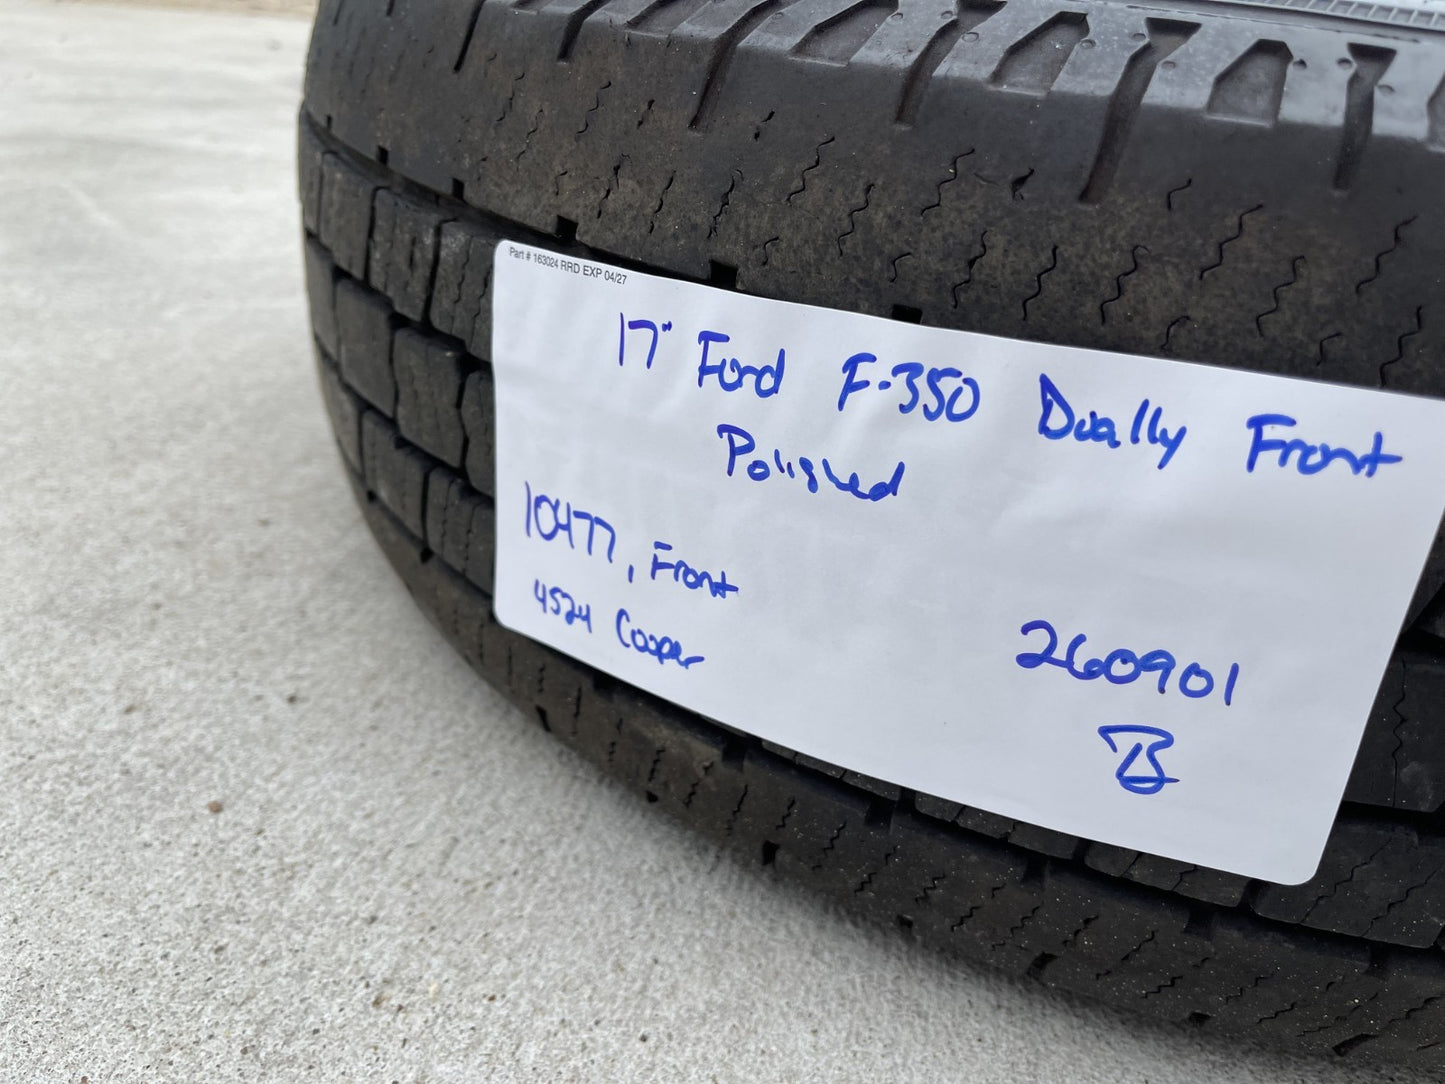 Part # 163024 RRD EXP 04/27
17" Ford F-350 Dually Front
Polished
10477, Front
4524 Cooper
260901
B